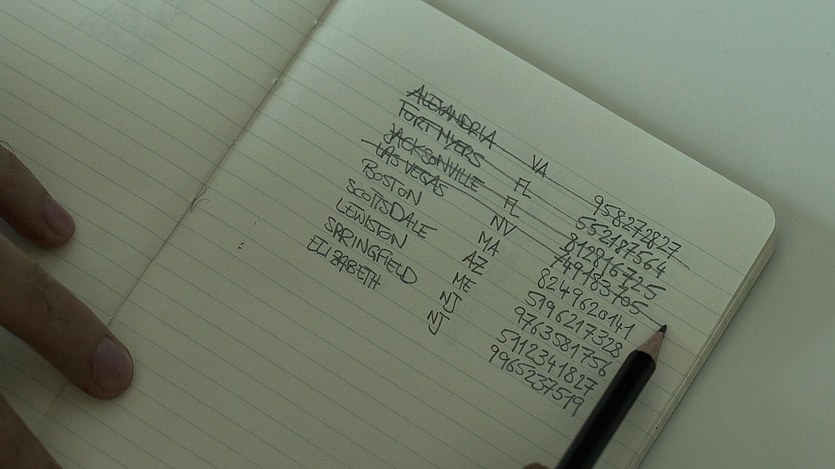 ALEXANDRIA VA 958272827
FORT MYERS FL 552187564
JACKSONVILLE FL 812816725
LAS VEGAS NV 749183705
BOSTON MA 8249620141
SCOTTSDALE AZ 5196217328
LEWISTON ME 9763581756
SPRINGFIELD NJ 5112341827
ELIZABETH NJ 9965237519